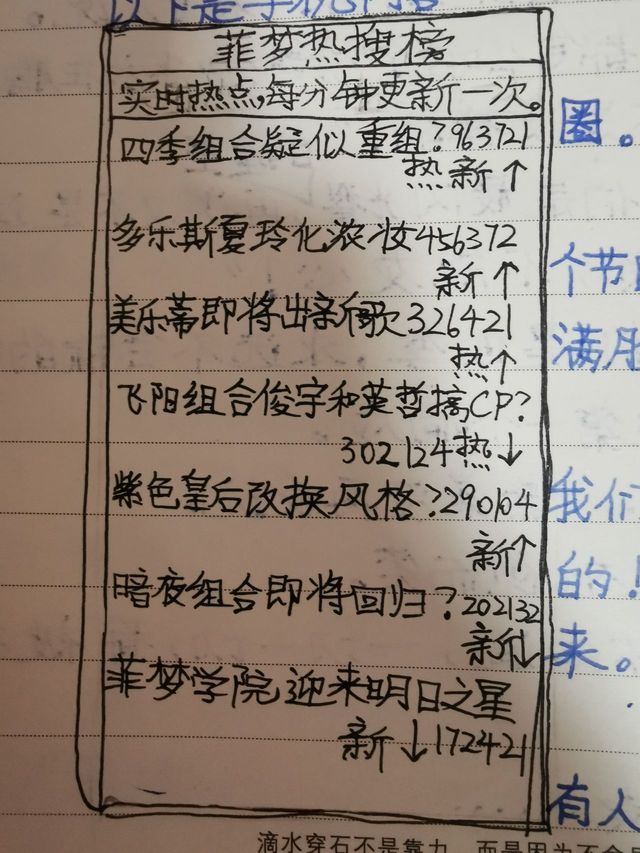 以下是手机内容
菲梦热搜榜
实时热点,每分钟更新一次。
四季组合疑似重组?963721
热新↑
多乐斯夏玲化浓妆456372
新↑
美乐蒂即将出新歌326421
热↑
飞阳组合俊宇和英哲搞CP?
302124热↓
紫色皇后改换风格?290104
新↑
暗夜组合即将回归?202132
新↓
菲梦学院迎来明日之星
新↓172421
圈。
个节
满月
我们
的!
来。
有人
滴水穿石不是靠力,而是因为不舍